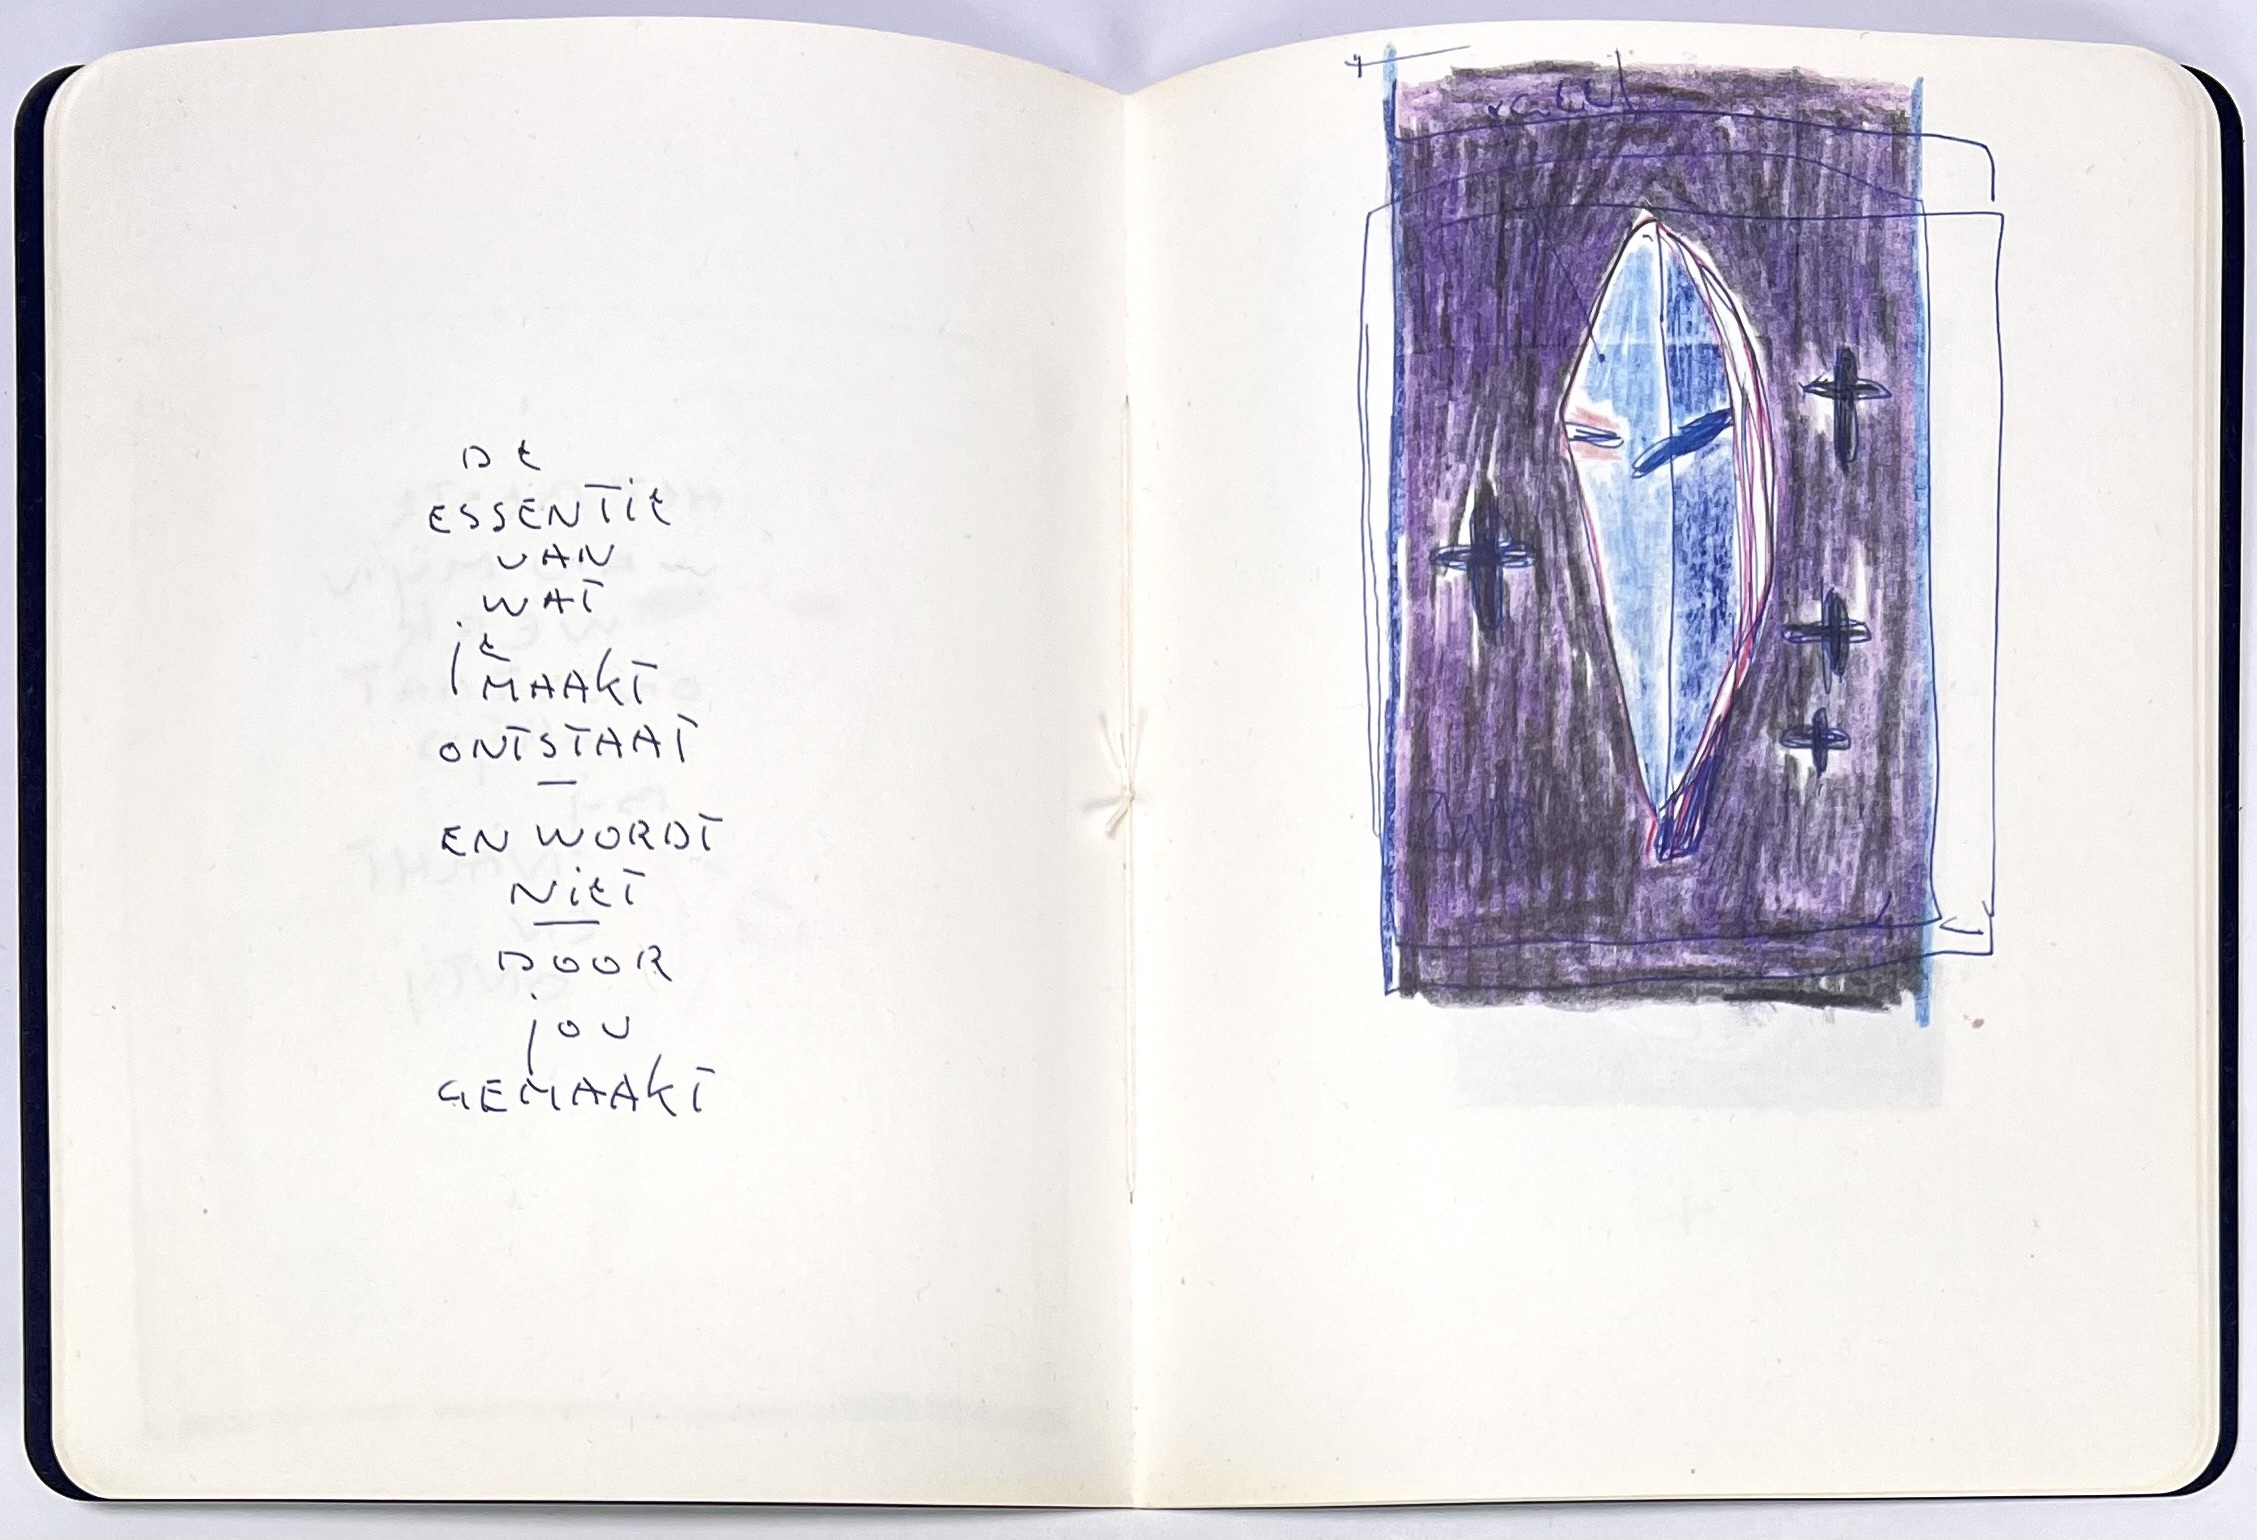 DE
ESSENTIE
VAN
WAT
jE
MAAKT
ONTSTAAT
EN WORDT
NIET
DOOR
jOU
GEMAAKT